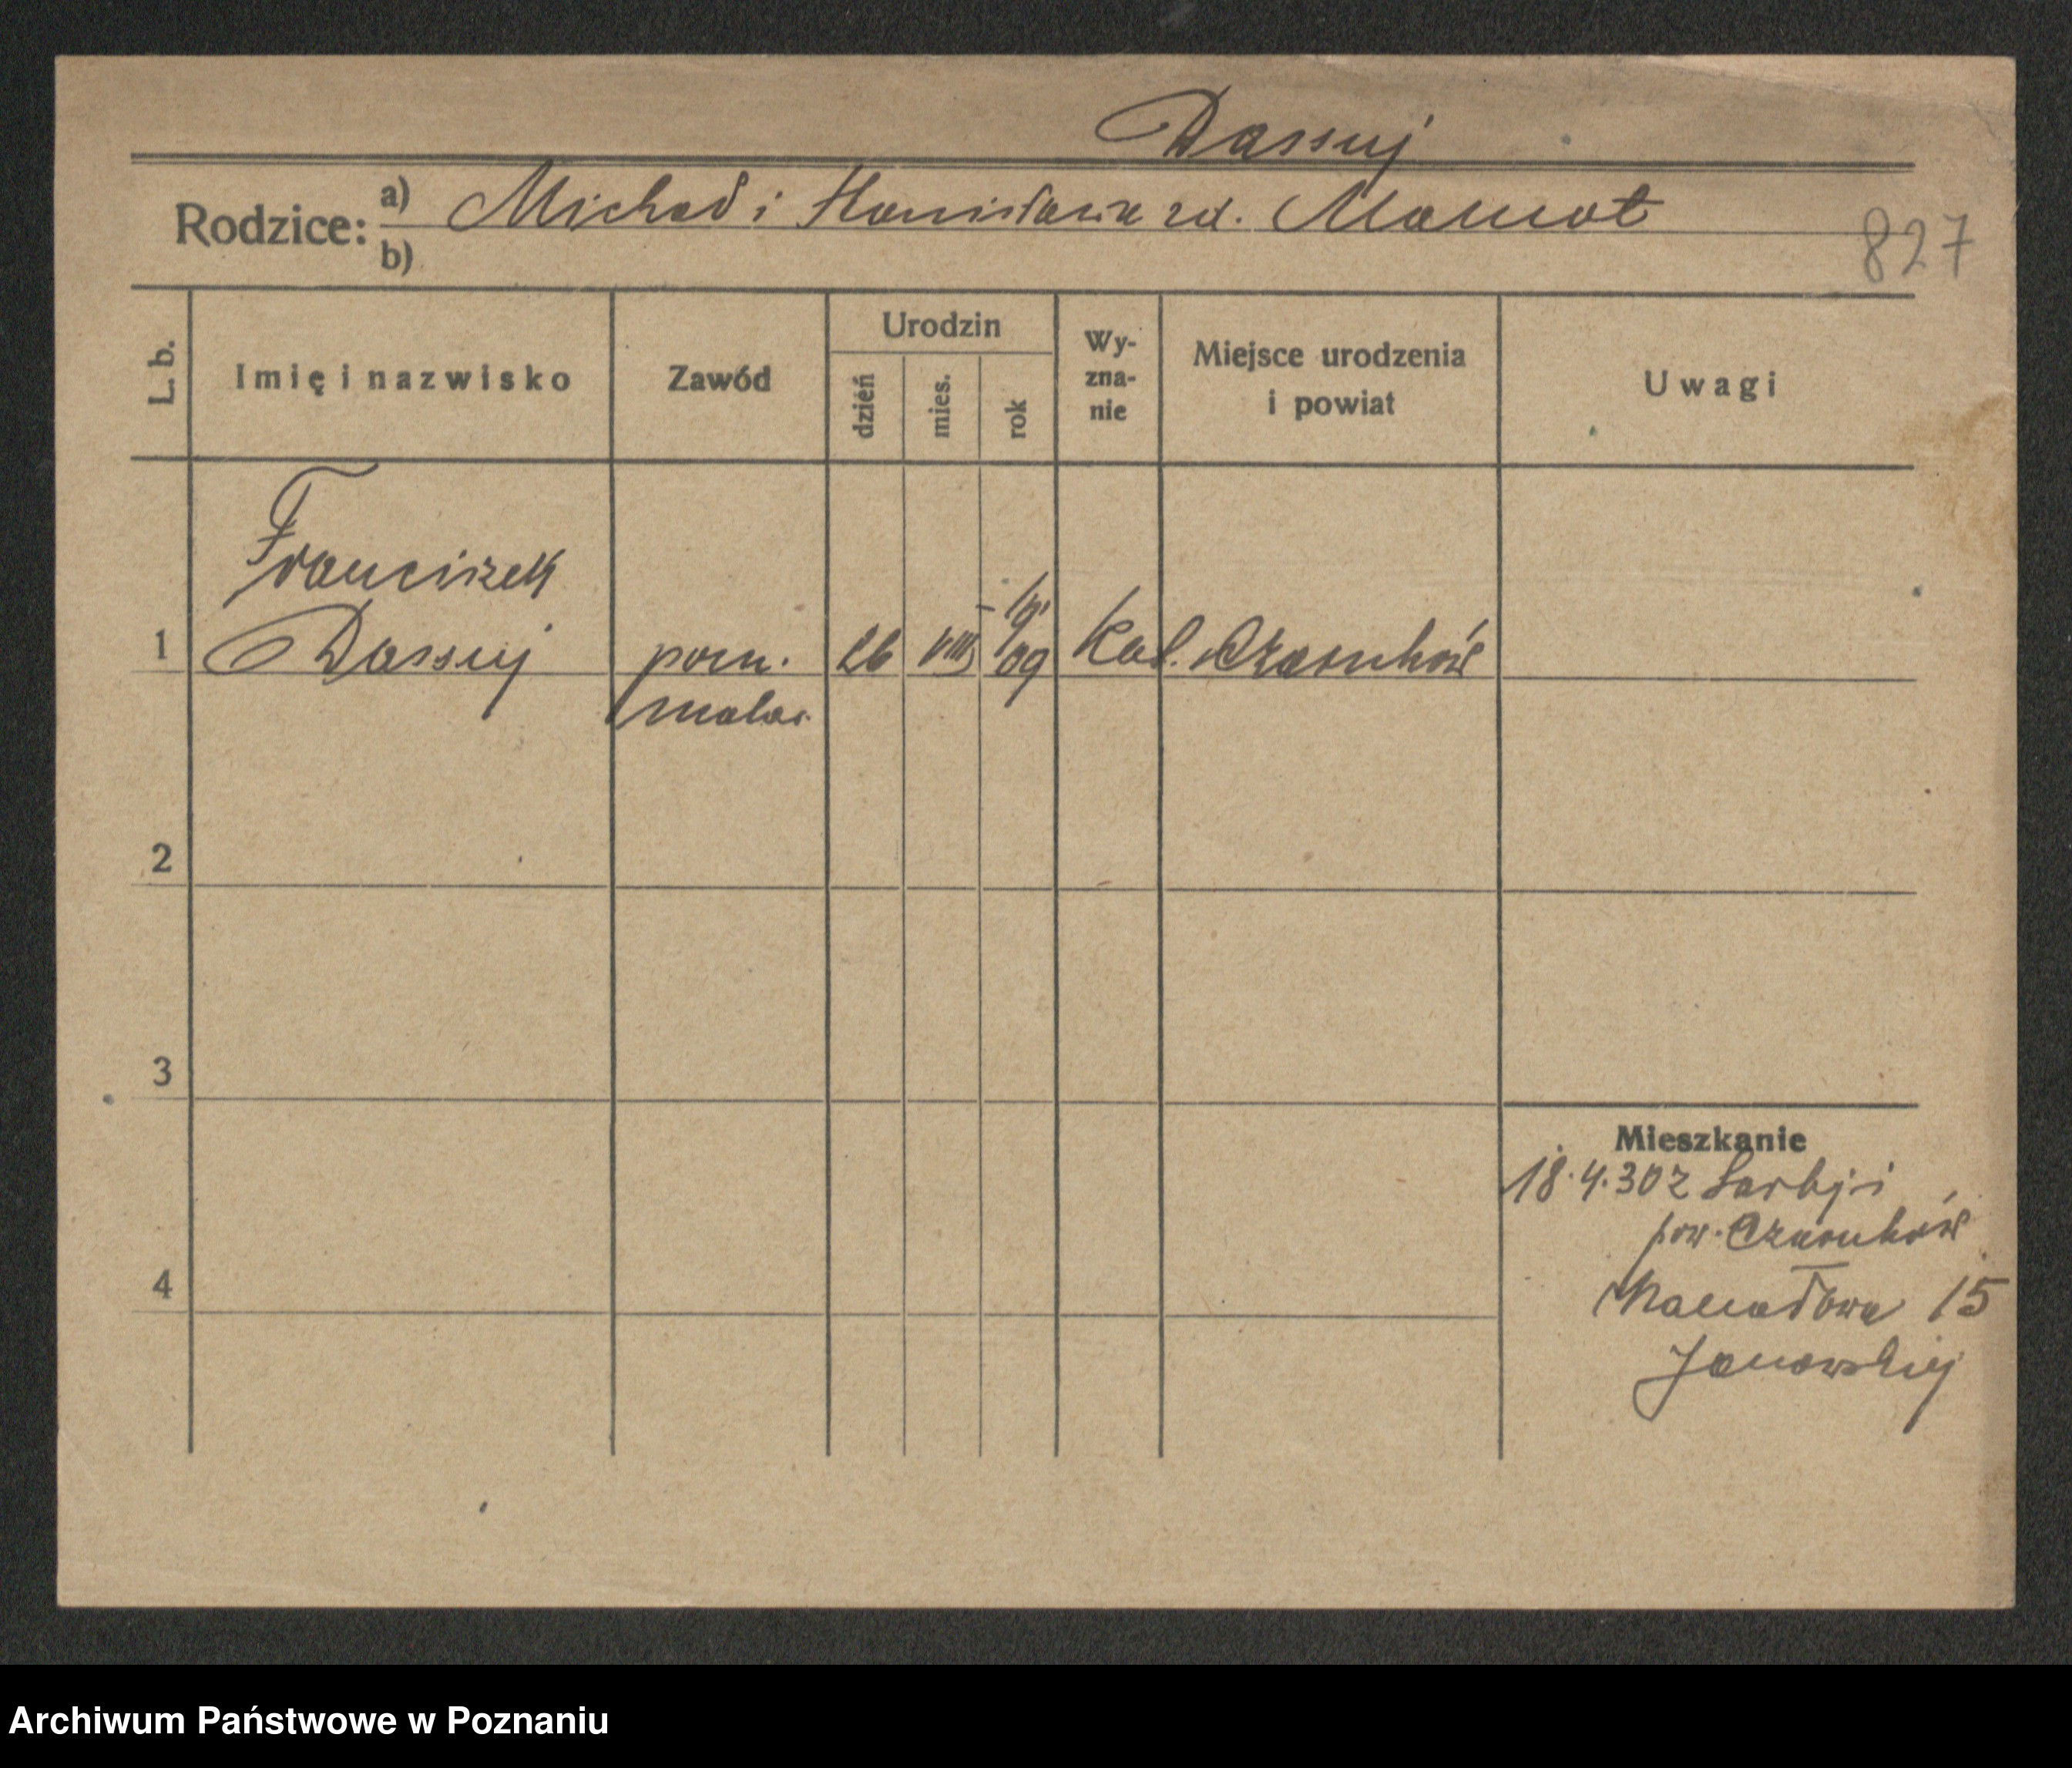 Dassuj
Rodzice: a) Michał i Stanisława zd. Mamot
b)
827
L. b.
Imię i nazwisko
Zawód
Urodzin
dzień
mies.
rok
Wy-
zna-
nie
Miejsce urodzenia
i powiat
Uwagi
Franciszek
1 Dassuj pom. 26 VIII 09 Kat. Czarnków
malar.
2
3
Mieszkanie
18.4.30 z Sarbji
pow. Czarnków
4
15
Janowskiej
Archiwum Państwowe w Poznaniu